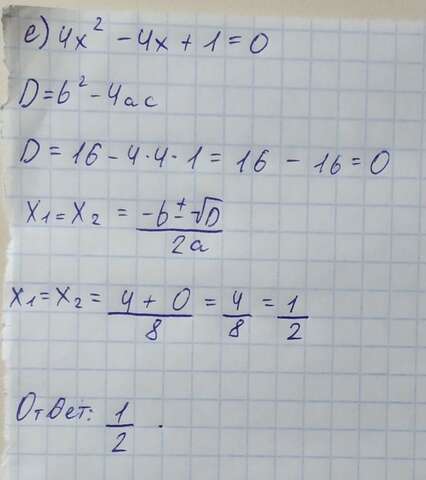 е) 4x² - 4x + 1 = 0
D = b² - 4ac
D = 16 - 4·4·1 = 16 - 16 = 0
x₁ = x₂ = (-b ± √D) / 2a
x₁ = x₂ = (4 + 0) / 8 = 4/8 = 1/2
Ответ: 1/2 .